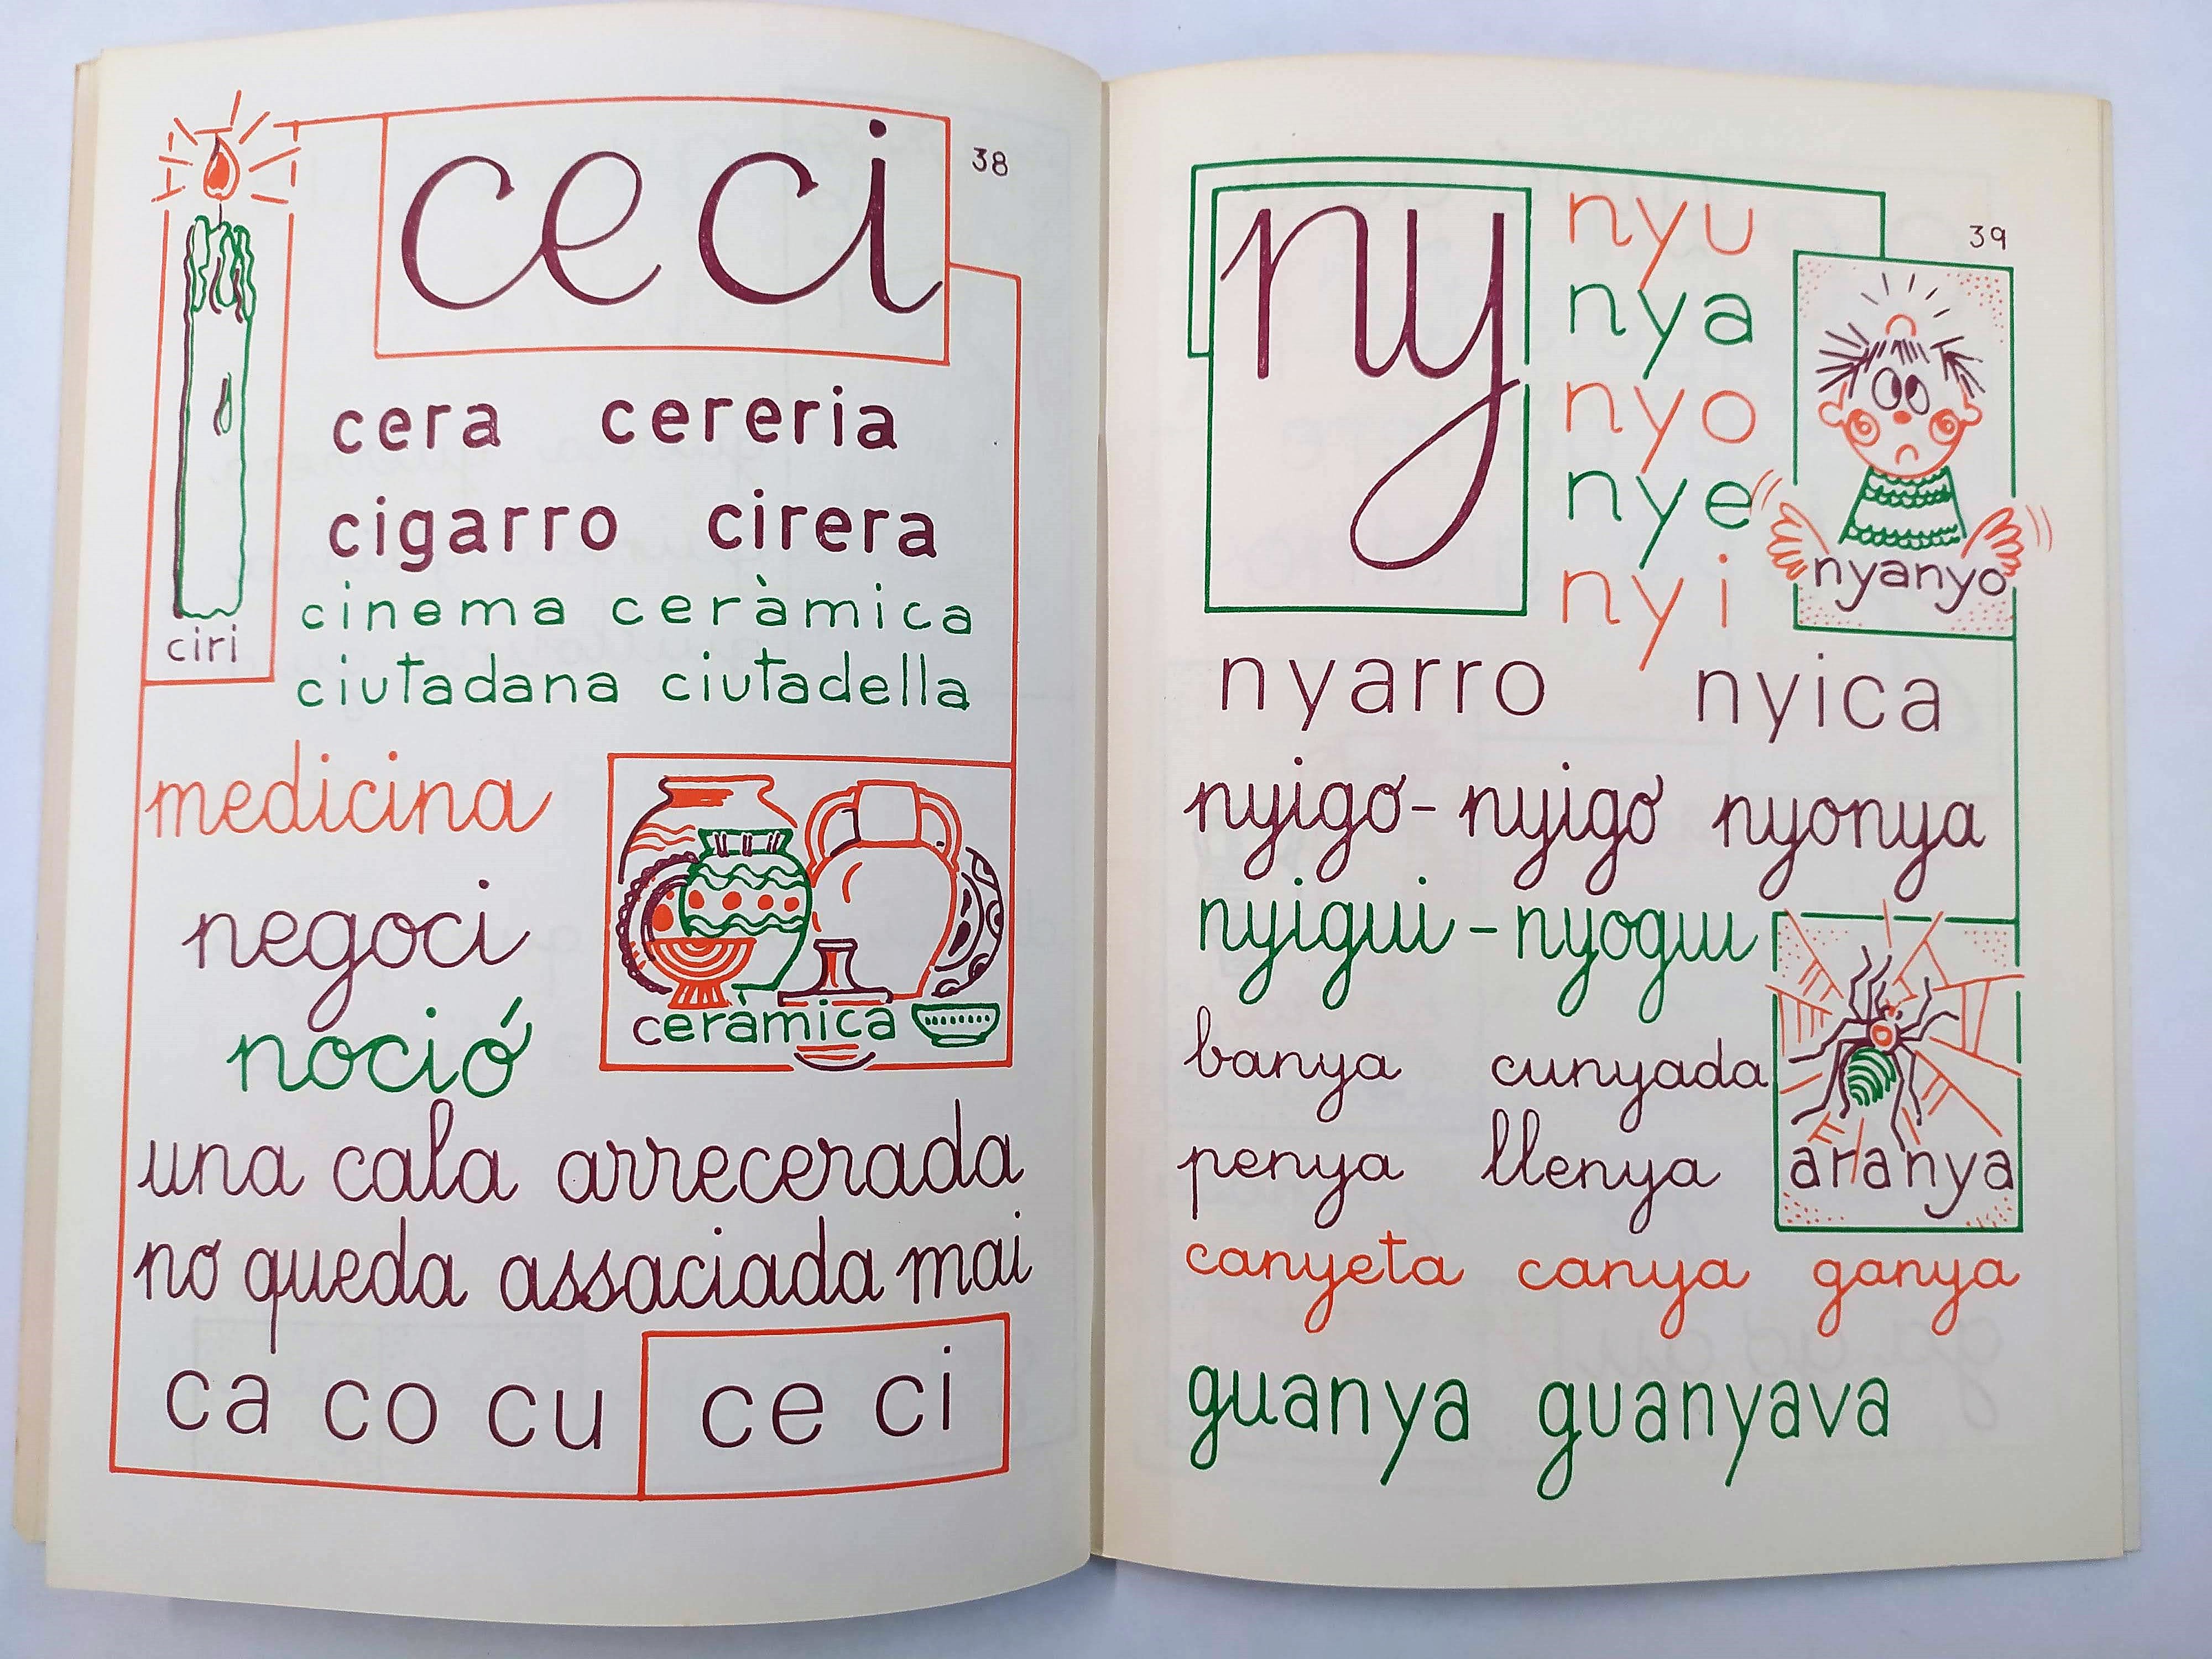 ce ci
38
ciri
cera cereria
cigarro cirera
cinema ceràmica
ciutadana ciutadella
medicina
negoci
noció
ceràmica
una cala arrecerada
no queda assaciada mai
ca co cu ce ci
39
ny
nyu
nya
nyo
nye
nyi
nyanyo
nyarro nyica
nyigo-nyigo nyonya
nyigui-nyogui
banya cunyada
penya llenya
aranya
canyeta canya ganya
guanya guanyava